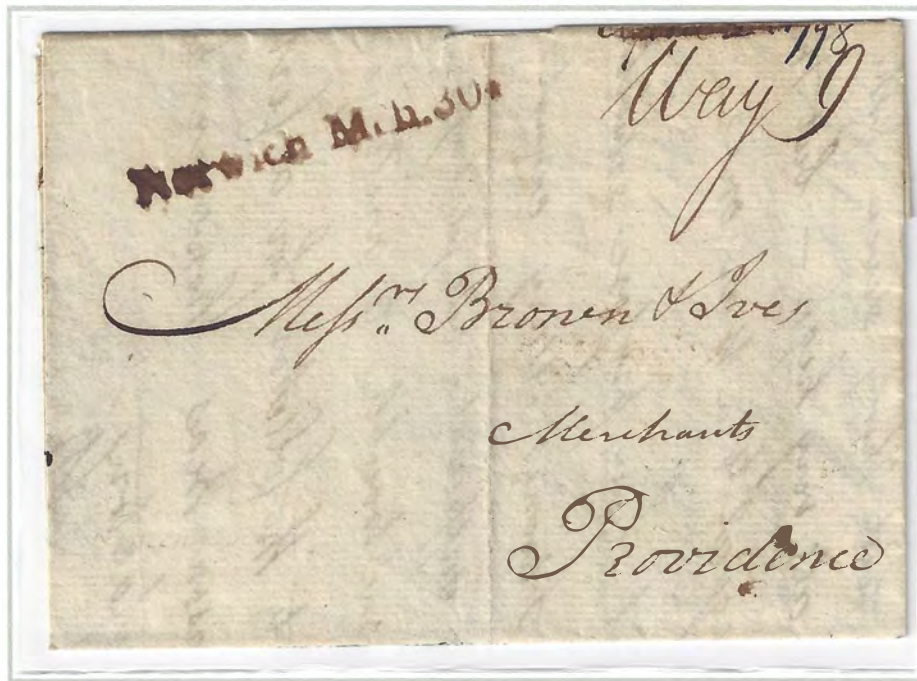 1798
Way 9
Norwich Mch. 30.
Messrs. Brown & Ives
Merchants
Providence